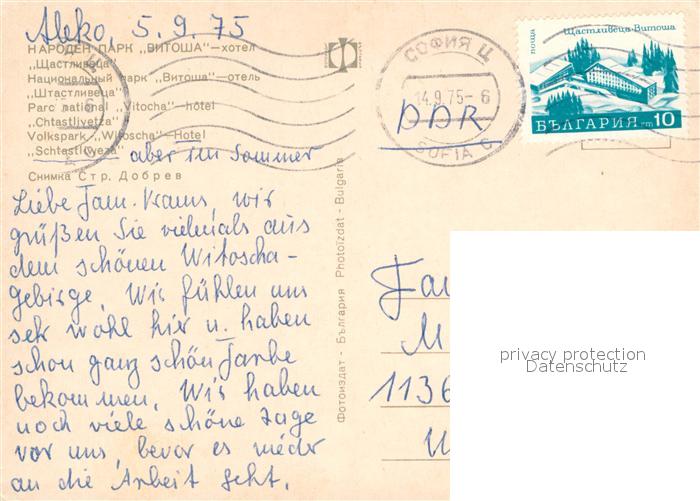 Aleko, 5.9.75
НАРОДЕН ПАРК „ВИТОША"—хотел
„Щастливеца"
Национальный парк „Витоша"—отель
„Штастливеца"
Parc national „Vitocha"—hôtel
„Chtastlivetza"
Volkspark „Witoscha"—Hotel
„Schtastliweza"
aber im Sommer
Снимка Стр. Добрев
Liebe Fam. Krams, wir
grüßen Sie vielmals aus
dem schönen Witoscha-
gebirge. Wir fühlen uns
sehr wohl hier u. haben
schon ganz schön Farbe
bekommen. Wir haben
noch viele schöne Tage
vor uns, bevor es wieder
an die Arbeit geht.
Фотоиздат - България Photoizdat - Bulgaria
СОФИЯ Ц
14.9.75-6
SOFIA C
DDR
поща
Щастливеца-Витоша
БЪЛГАРИЯ 10
Fa
M
1136
privacy protection
Datenschutz